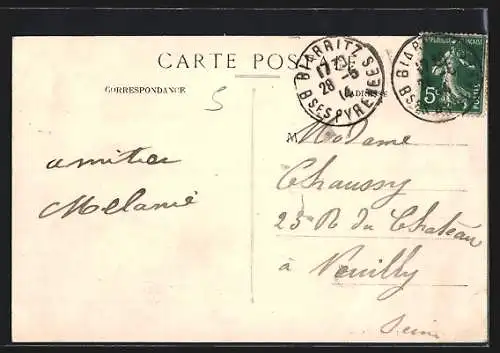 CARTE POSTALE
CORRESPONDANCE
ADRESSE
5
BIARRITZ
17
28 -5
14
BSES PYRENEES
BIAR
BSE
REPUBLIQUE FRANCAISE
5c
POSTES
amitiés
Mélanie
M Madame
Chaussy
25 R du Chateau
à Neuilly
Seine